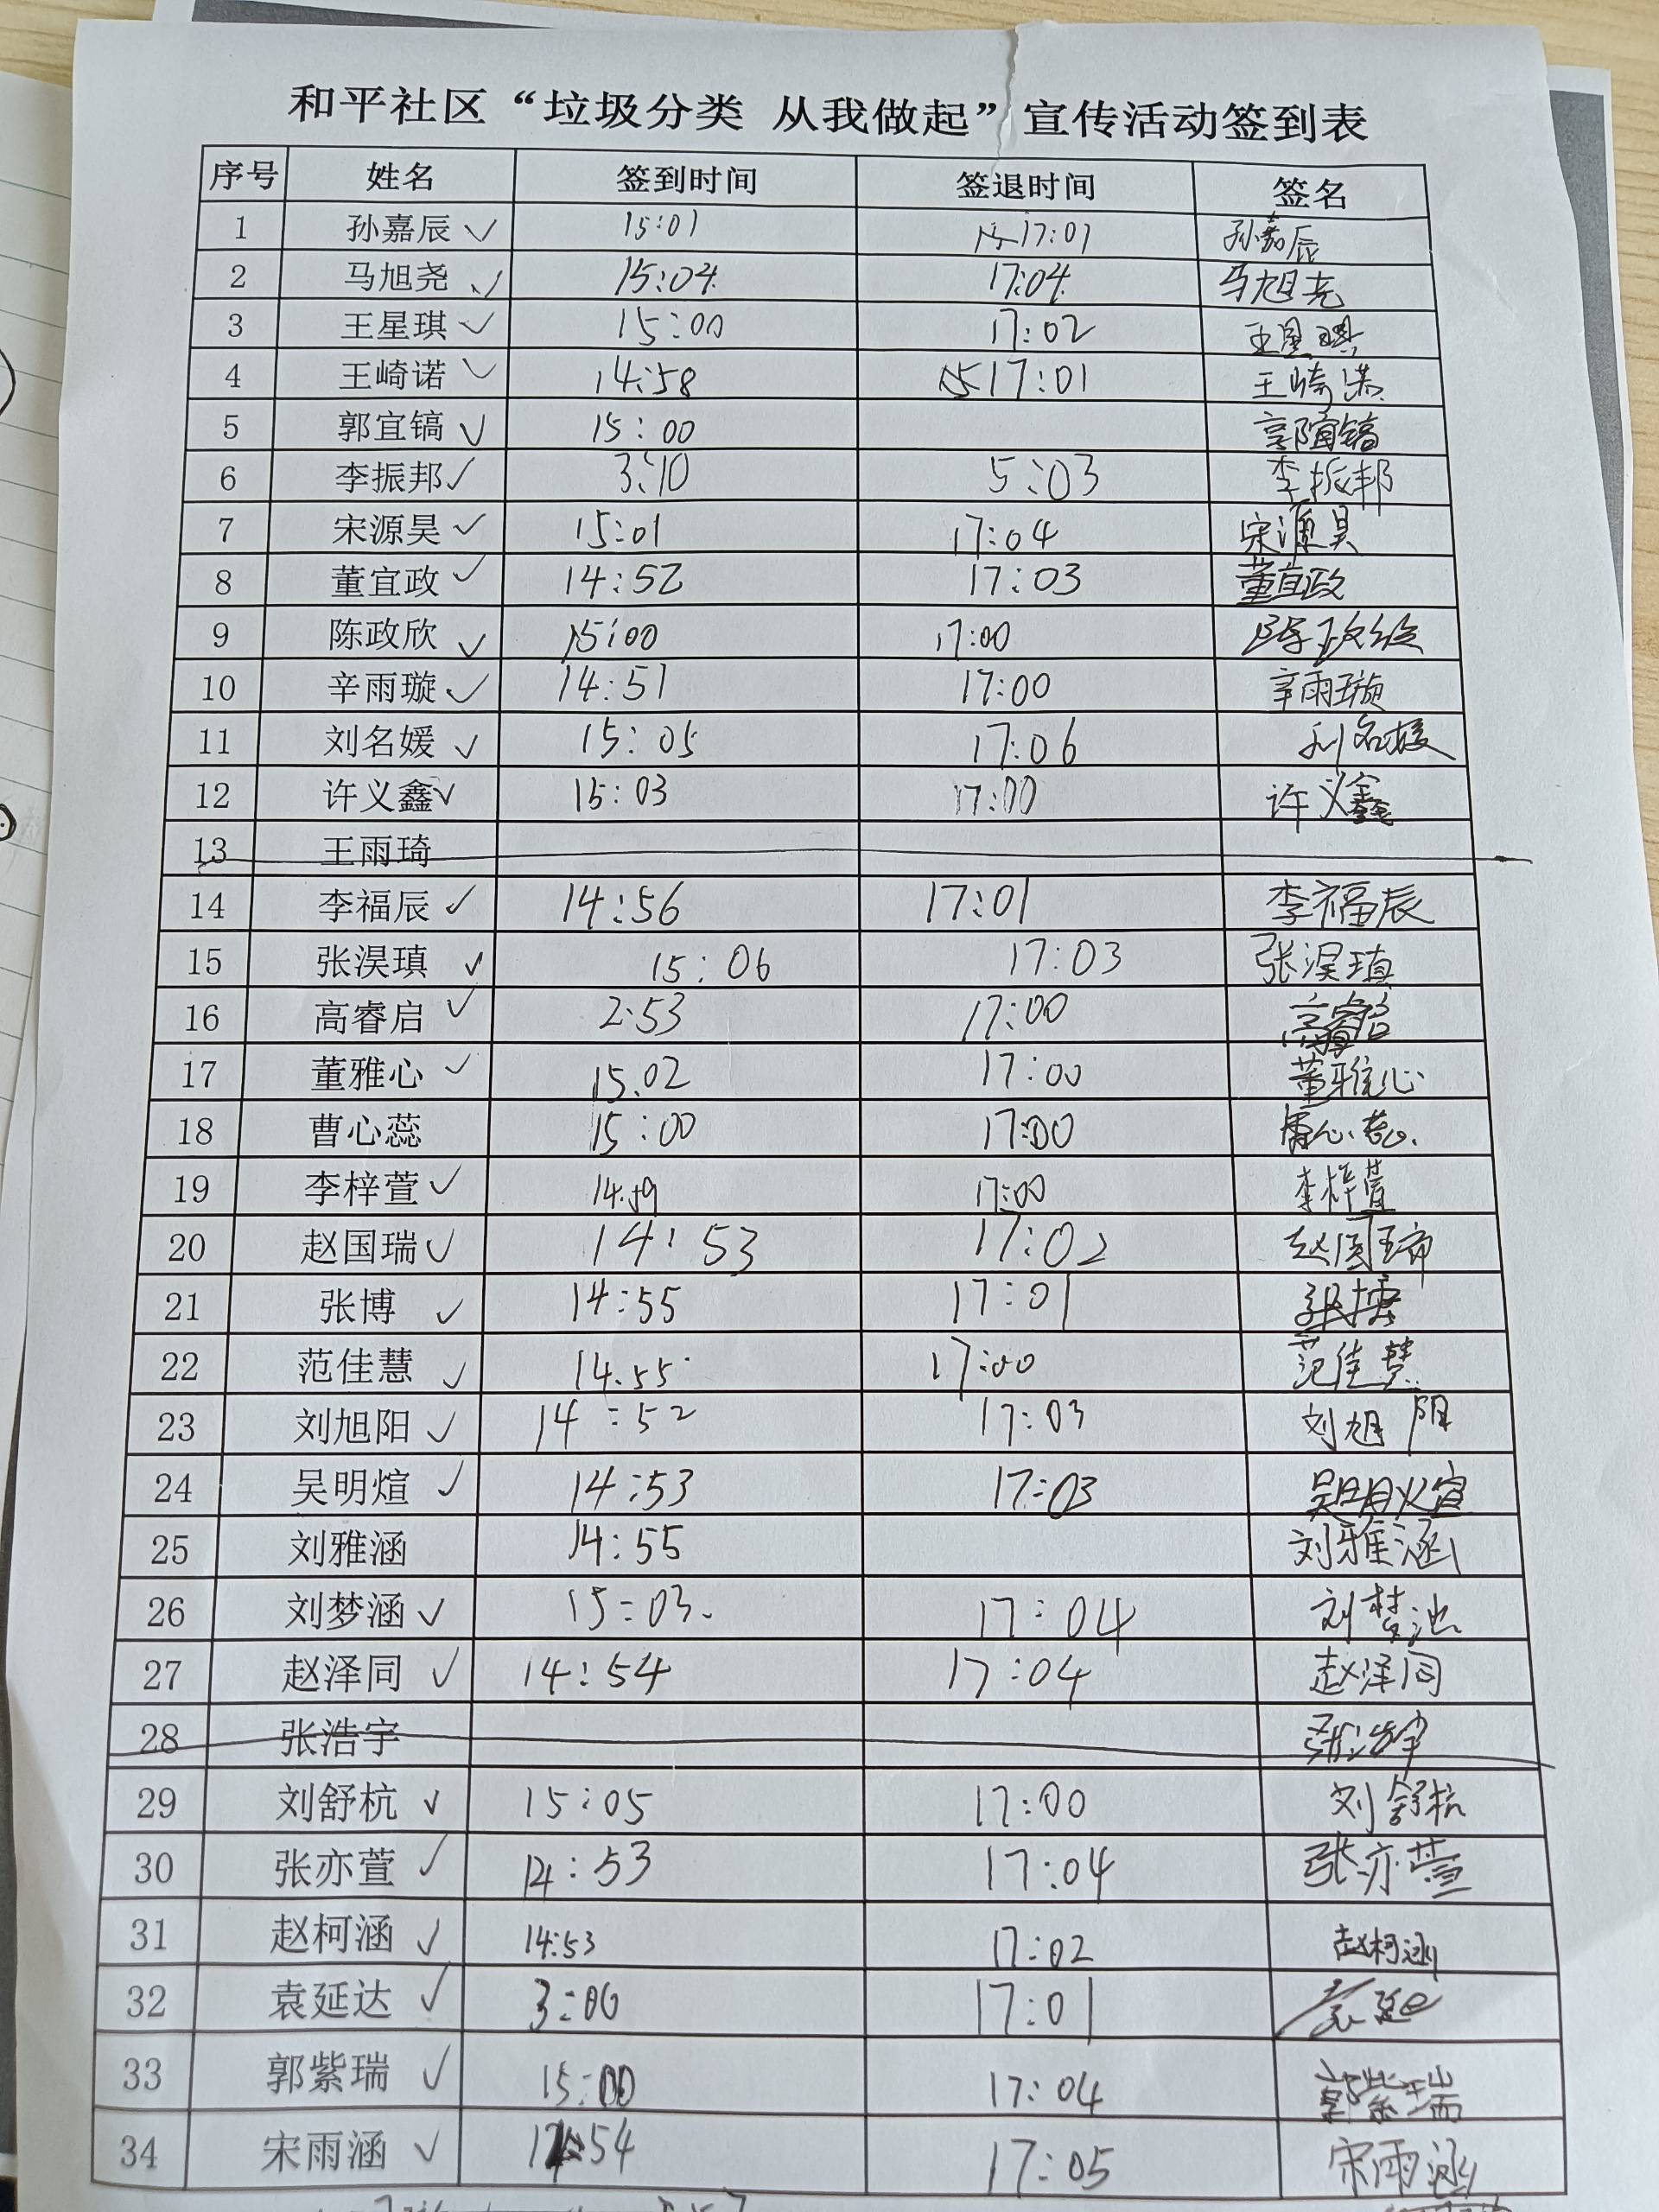 和平社区“垃圾分类 从我做起”宣传活动签到表
序号 姓名 签到时间 签退时间 签名
1 孙嘉辰 ✓ 15:01 17:01 孙嘉辰
2 马旭尧 ✓ 15:04 17:04 马旭尧
3 王星琪 ✓ 15:00 17:02 王星琪
4 王崎诺 ✓ 14:58 17:01 王崎诺
5 郭宜镐 ✓ 15:00 郭宜镐
6 李振邦 ✓ 3:10 5:03 李振邦
7 宋源昊 ✓ 15:01 17:04 宋源昊
8 董宜政 ✓ 14:52 17:03 董宜政
9 陈政欣 ✓ 15:00 17:00 陈政欣
10 辛雨璇 ✓ 14:51 17:00 辛雨璇
11 刘名媛 ✓ 15:05 17:06 刘名媛
12 许义鑫 ✓ 15:03 17:00 许义鑫
13 王雨琦
14 李福辰 ✓ 14:56 17:01 李福辰
15 张淏瑱 ✓ 15:06 17:03 张淏瑱
16 高睿启 ✓ 2:53 17:00 高睿启
17 董雅心 ✓ 15.02 17:00 董雅心
18 曹心蕊 15:00 17:00 曹心蕊
19 李梓萱 ✓ 14:59 17:00 李梓萱
20 赵国瑞 ✓ 14:53 17:02 赵国瑞
21 张博 ✓ 14:55 17:01 张博
22 范佳慧 ✓ 14.55 17:00 范佳慧
23 刘旭阳 ✓ 14:52 17:03 刘旭阳
24 吴明煊 ✓ 14:53 17:03 吴明煊
25 刘雅涵 14:55 刘雅涵
26 刘梦涵 ✓ 15:03. 17:04 刘梦涵
27 赵泽同 ✓ 14:54 17:04 赵泽同
28 张浩宇 张浩宇
29 刘舒杭 ✓ 15:05 17:00 刘舒杭
30 张亦萱 ✓ 14:53 17:04 张亦萱
31 赵柯涵 ✓ 14:53 17:02 赵柯涵
32 袁延达 ✓ 3:00 17:01 袁延达
33 郭紫瑞 ✓ 15:00 17:04 郭紫瑞
34 宋雨涵 ✓ 14:54 17:05 宋雨涵